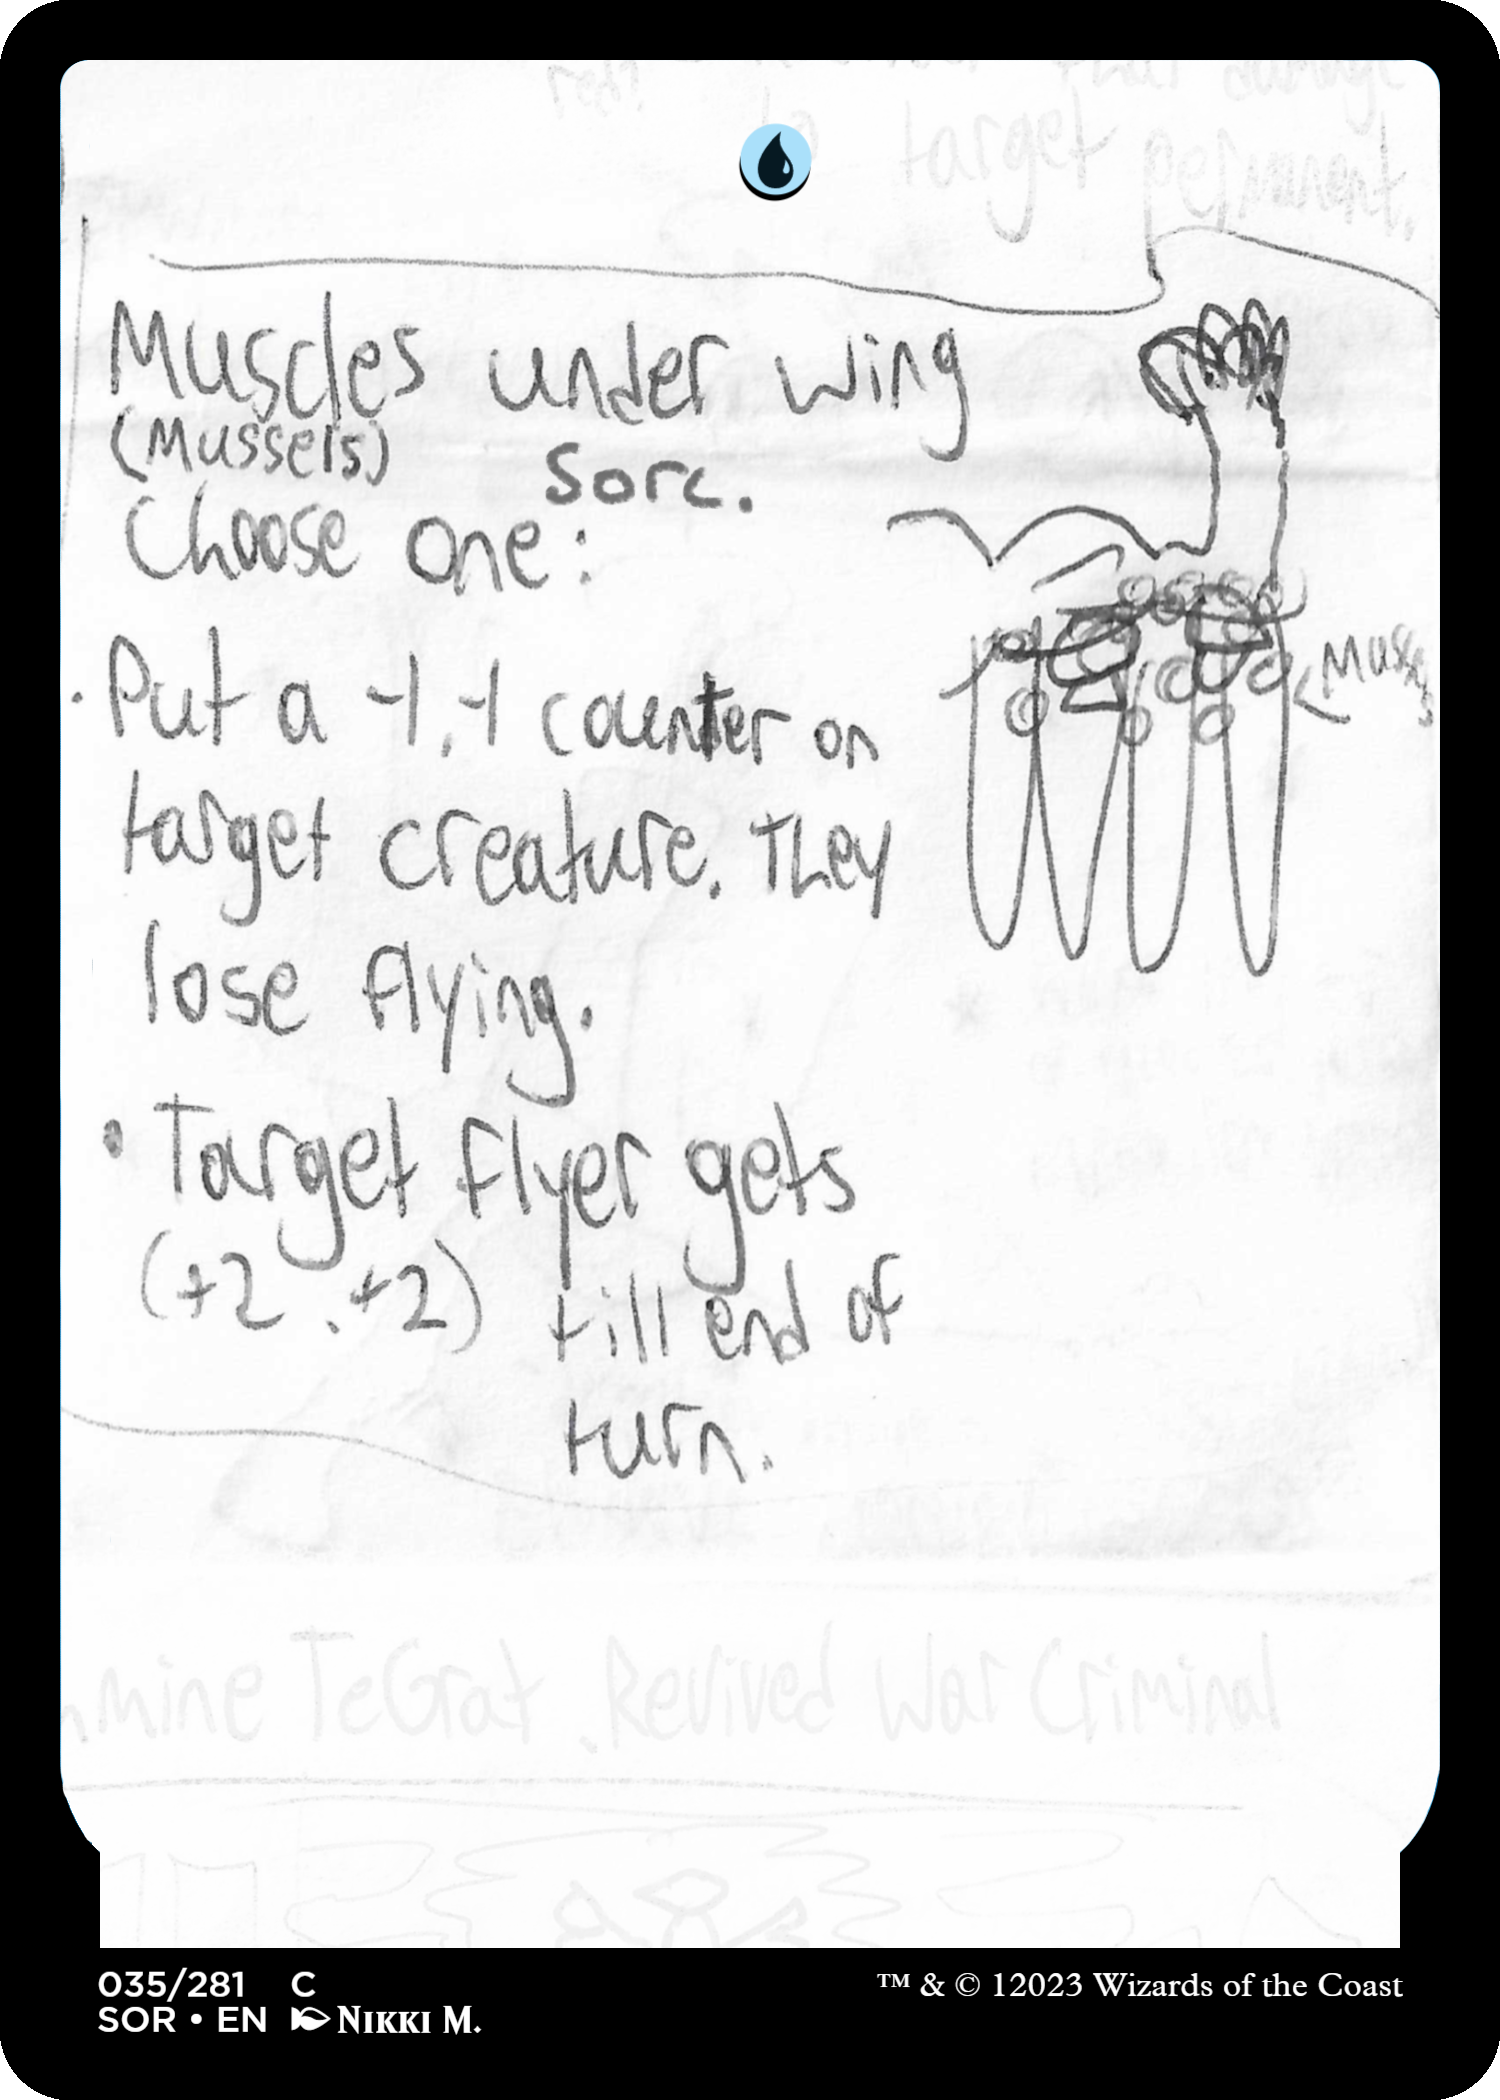 target permanent.
Muscles under wing
(Mussels)
Sorc.
Choose one:
Mussels
· Put a -1,-1 counter on
target creature. They
lose flying.
• Target flyer gets
(+2,+2) till end of
turn.
mine TeGrat, Revived War Criminal
035/281 C
SOR • EN NIKKI M.
™ & © 12023 Wizards of the Coast